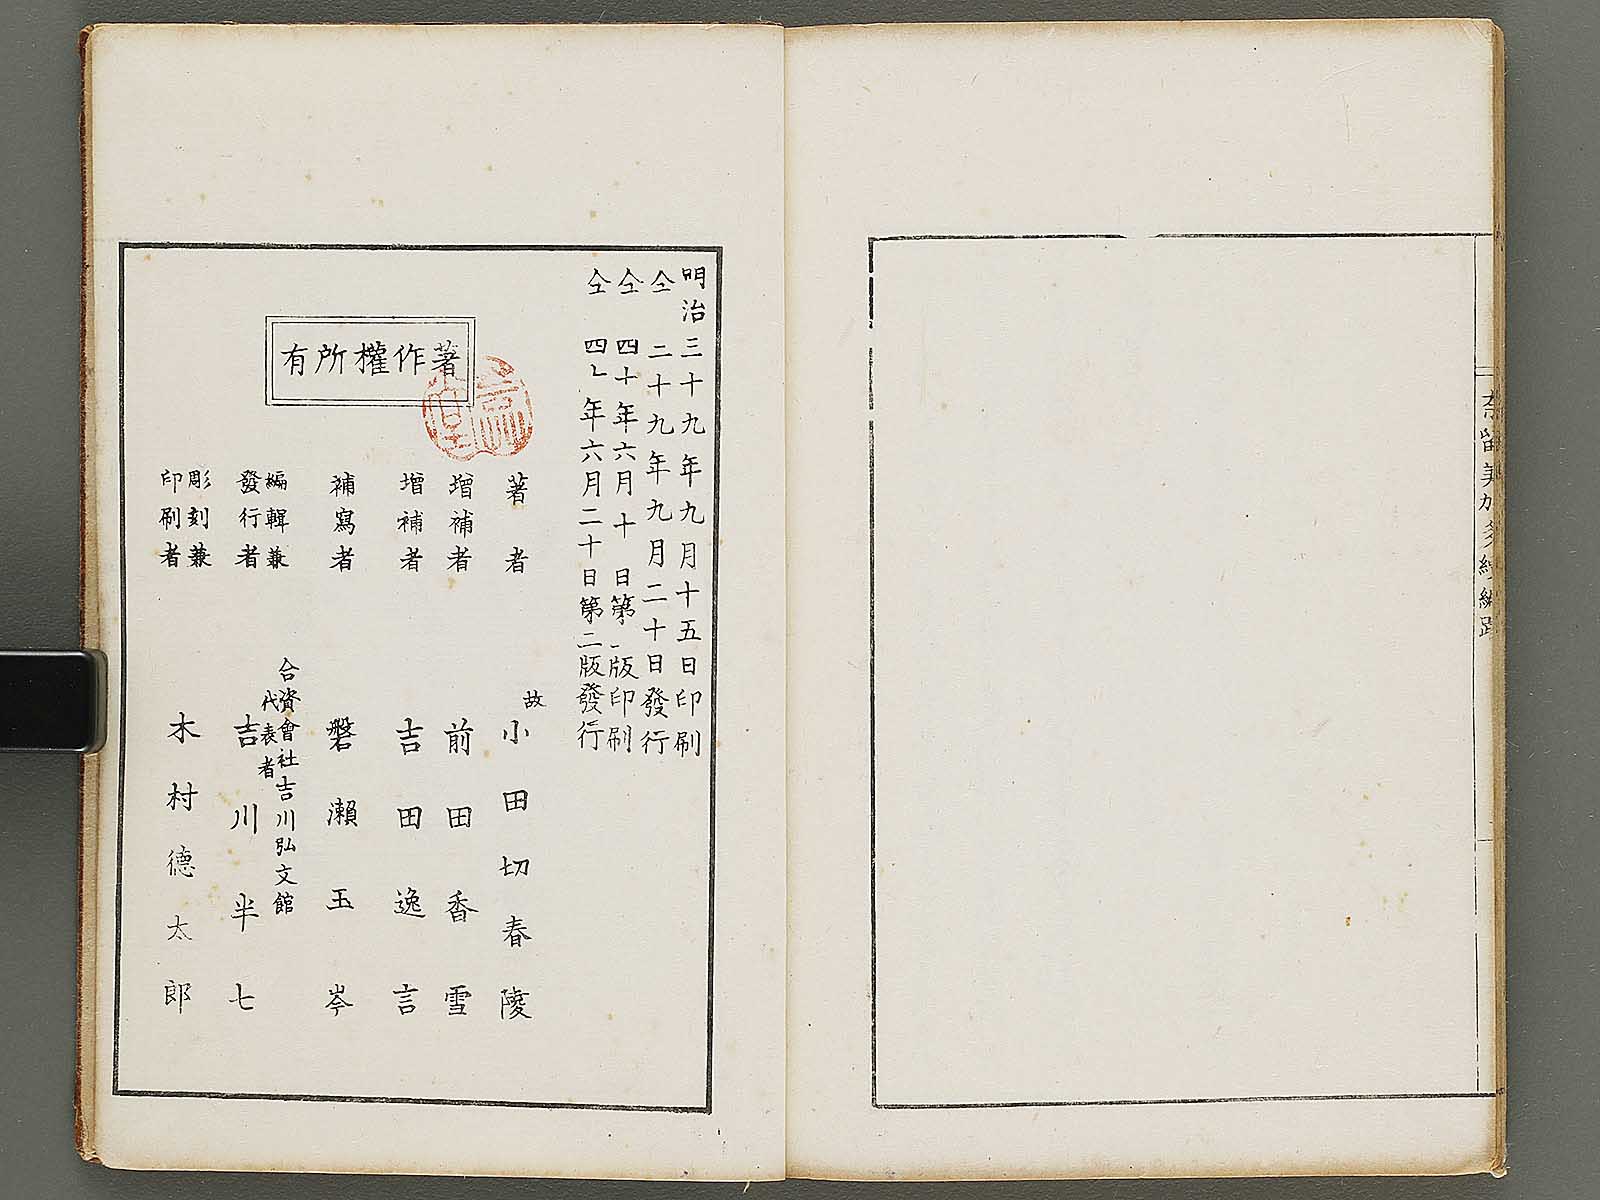 奈留美加多 續編跋
明治三十九年九月十五日印刷
仝 二十九年九月二十日發行
仝 四十年六月十日第一版印刷
仝 四十年六月二十日第二版發行
著作權所有
著者 故 小田切春陵
增補者 前田香雪
增補者 吉田逸言
補寫者 磐瀬玉岑
編輯兼發行者 合資會社吉川弘文館
代表者 吉川半七
彫刻兼印刷者 木村德太郎